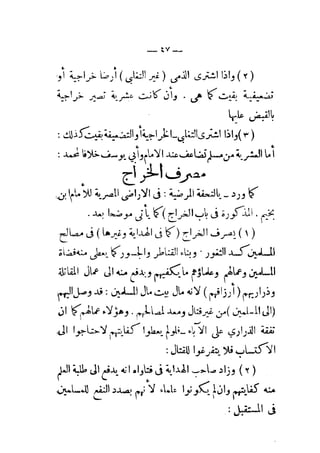 — ٤٧ —
(٢) واذا اشترى الذمى (غير التغلبى) أرضا خراجية أو
تضعيفية بقيت كما هى . وأن كانت عشرية تصير خراجية
بالقبض عليها
(٣) واذا اشترى التغلبى_الخراجية أوالتضعيفة بقيت كذلك :
أما العشرية من مسلم تضاعف عند الامام وأبي يوسف خلافا لمحمد :
مصرف الخراج
كما ورد _ بالتحفة المرضية : فى الاراضى المصرية للأمام ابن
نجيم . المذكورة فى باب الخراج) كما يأتى موضحا بعد .
(١) يصرف الخراج (كما فى الهداية وغيرها) فى مصالح
المسلمين كسد الثغور . وبناء القناطر والجسور كما يعطى منه قضاة
المسلمين وعمالهم وعلماؤهم ما يكفيهم ويدفع منه الى عمال المقاتلة
وذراريهم (أرزاقهم) لانه مال بيت مال المسلمين : قد وصل اليهم
(الى المسلمين) من غير قتال ومعد لمصالحهم . وهؤلاء عمالهم كما ان
نفقة الذراري على الآباء _ فلو لم يعطوا كفايتهم لاحتاجوا الى
الاكتساب فلا يتفرغوا للقتال :
(٢) وزاد صاحب الهداية فى فتاواه انه يدفع الى طلبة العلم
منه كفايتهم وان لم يكونوا علماء لأنهم بصدد النفع للمسلمين
فى المستقبل :